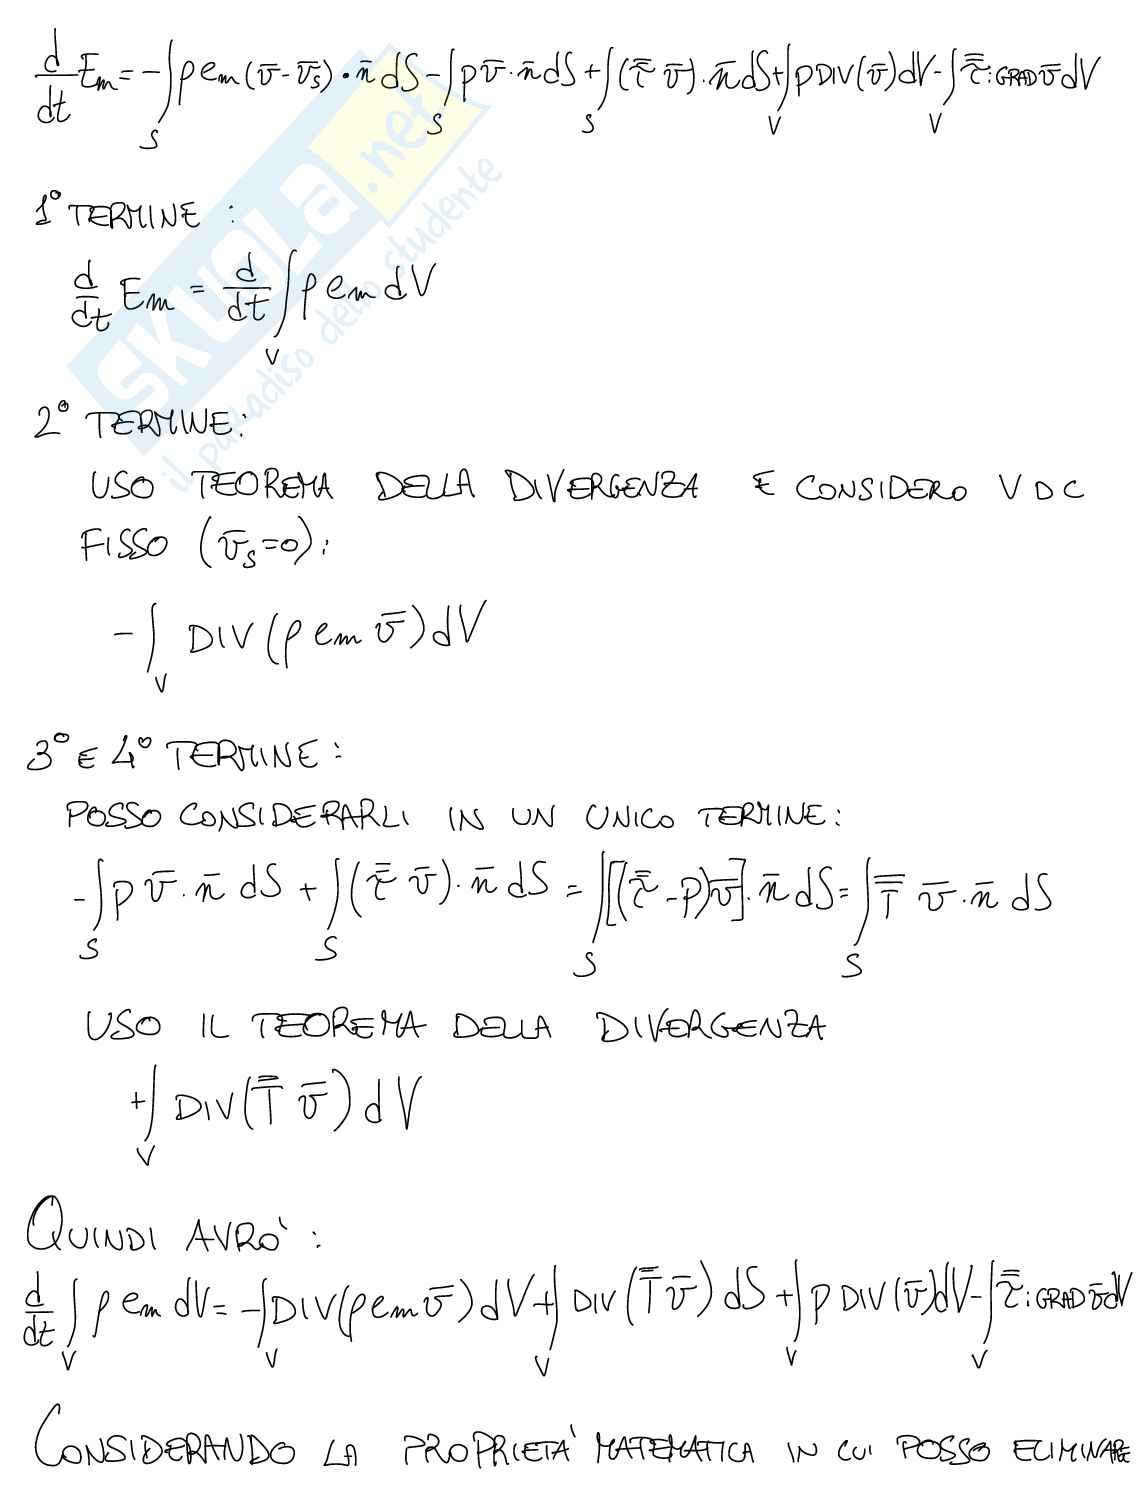 d/dt Em = -∫_S ρ em (v̄ - v̄s) · n̄ dS - ∫_S p v̄ · n̄ dS + ∫_S (τ̿ v̄) · n̄ dS + ∫_V p DIV(v̄) dV - ∫_V τ̿ : GRAD v̄ dV
1° TERMINE :
d/dt Em = d/dt ∫_V ρ em dV
2° TERMINE:
USO TEOREMA DELLA DIVERGENZA E CONSIDERO V D C
FISSO (v̄s=0):
- ∫_V DIV(ρ em v̄) dV
3° E 4° TERMINE :
POSSO CONSIDERARLI IN UN UNICO TERMINE:
- ∫_S p v̄ · n̄ dS + ∫_S (τ̿ v̄) · n̄ dS = ∫_S [(τ̿ - p) v̄] · n̄ dS = ∫_S T̿ v̄ · n̄ dS
USO IL TEOREMA DELLA DIVERGENZA
+ ∫_V DIV(T̿ v̄) dV
QUINDI AVRO' :
d/dt ∫_V ρ em dV = - ∫_V DIV(ρ em v̄) dV + ∫_V DIV(T̿ v̄) dS + ∫_V p DIV(v̄) dV - ∫_V τ̿ : GRAD v̄ dV
CONSIDERANDO LA PROPRIETA' MATEMATICA IN CUI POSSO ELIMINARE
SKUOLA.net
il paradiso dello studente